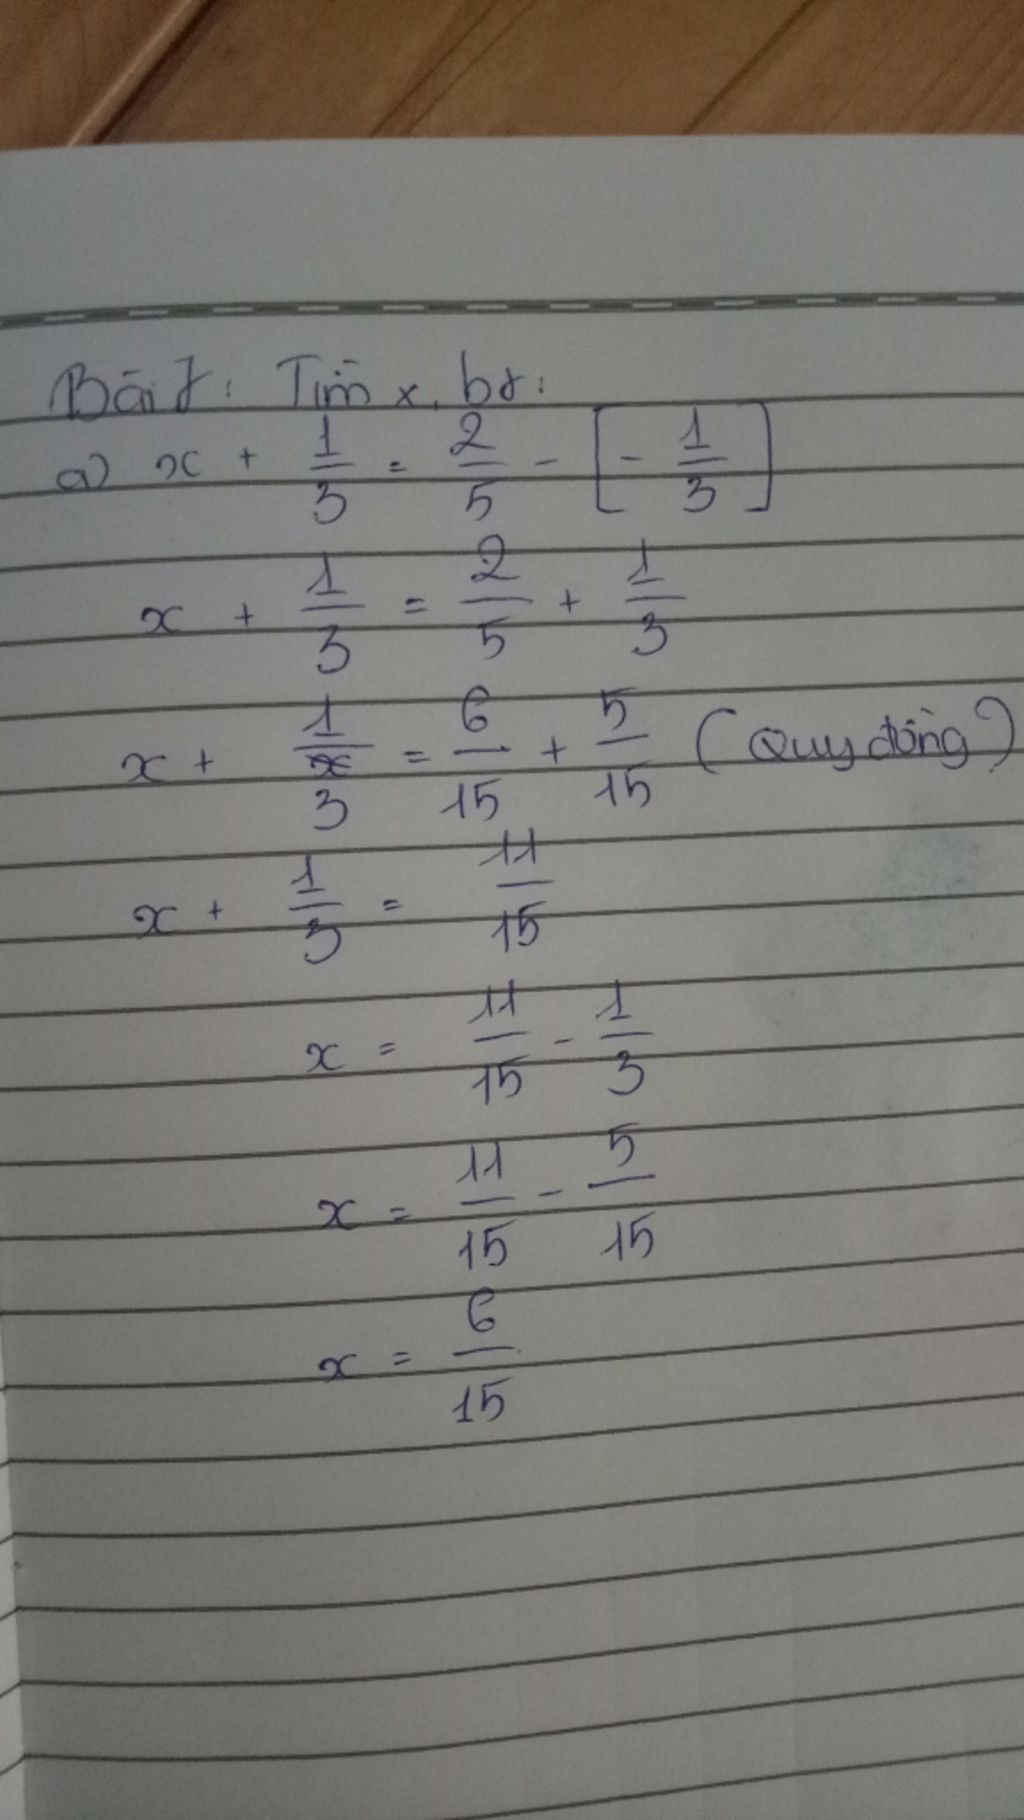 Bài 7: Tìm x, bt:
a) x + 1/3 = 2/5 - [- 1/3]
x + 1/3 = 2/5 + 1/3
x + 1/3 = 6/15 + 5/15 (Quy đồng)
x + 1/3 = 11/15
x = 11/15 - 1/3
x = 11/15 - 5/15
x = 6/15